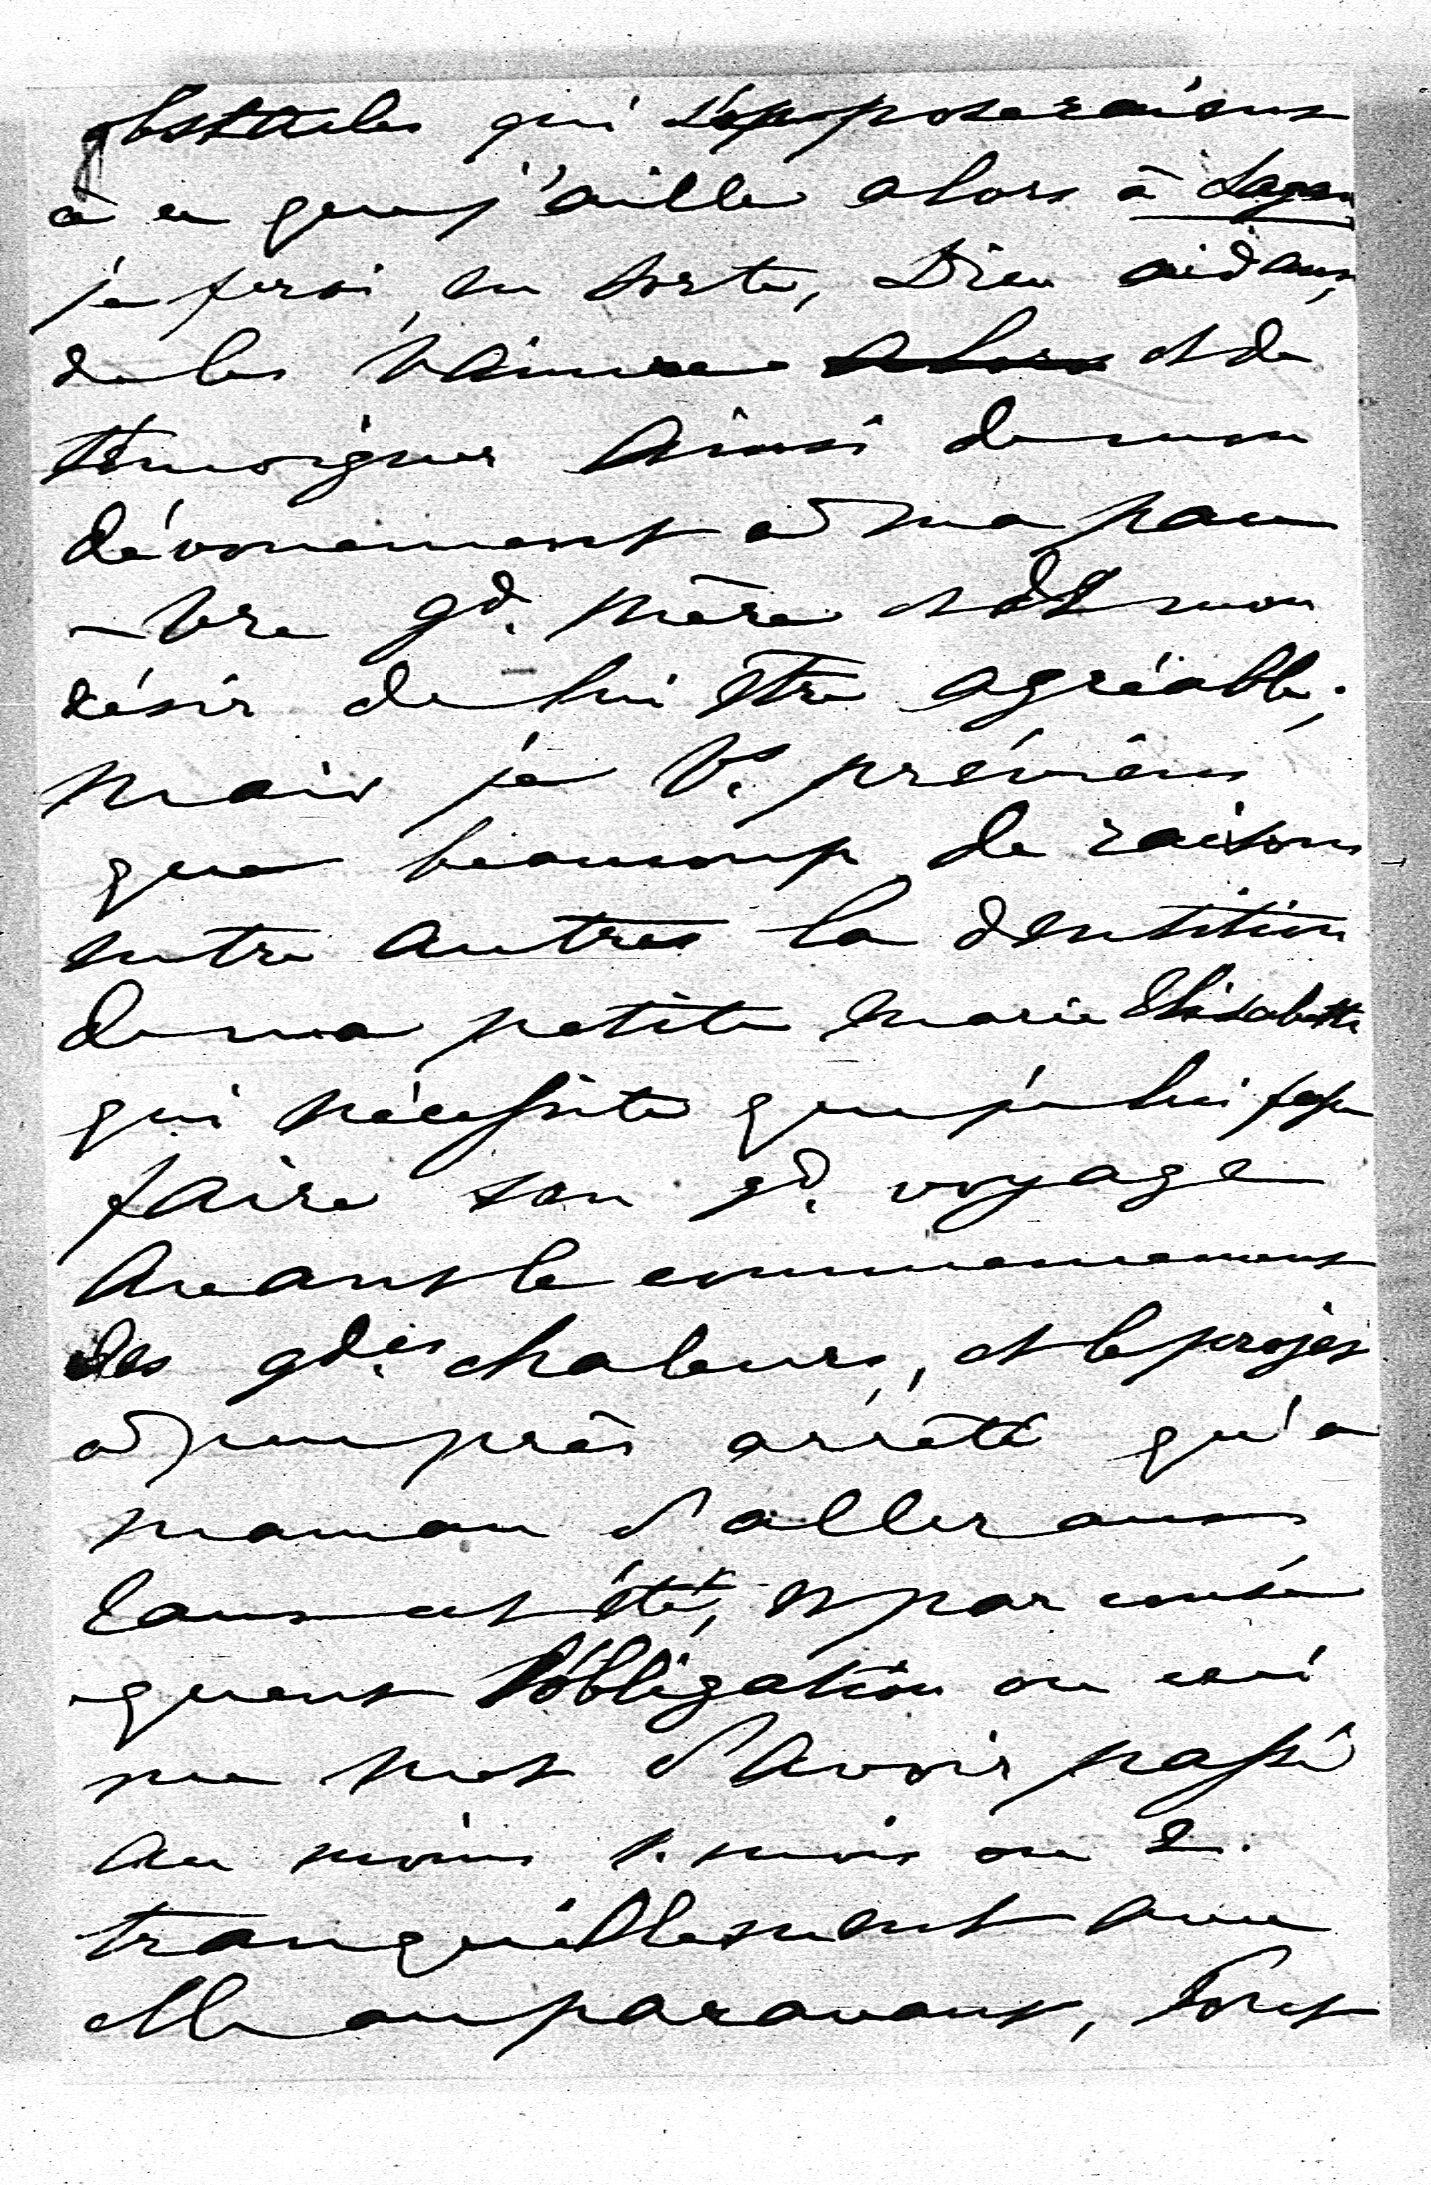 obstacles qui s'opposeraient
à ce que j'aille alors à
je ferai en sorte, Dieu aidant,
de les vaincre alors et de
témoigner ainsi de mon
dévouement à ma pau
-vre gd. mère et de mon
désir de lui être agréable;
mais je Vs. préviens
que beaucoup de raisons
entre autres la dentition
de ma petite Marie Elisabeth
qui nécessite que je lui fasse
faire son gd. voyage
avant le commencement
des gdes. chaleurs, et le projet
à peu près arrêté qu'a
maman d'aller aux
eaux cet été, et par consé
quent l'obligation ou ceci
me met d'avoir passé
au moins 1. mois ou 2.
tranquillement avec
elle auparavant, font